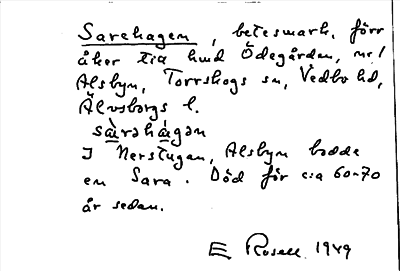 Sarehagen, betesmark, förr
åker till hmd Ödegården, nr 1
Alsbyn, Torrskogs sn, Vedbo hd,
Älvsborgs l.
sàrəhágən
I Nerstugan, Alsbyn bodde
en Sara. Död för c:a 60-70
år sedan.
E Rosell 1949